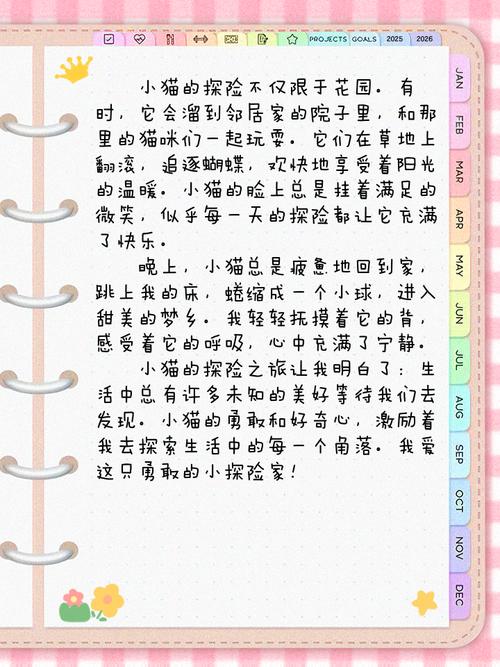 PROJECTS GOALS 2025 2026
小猫的探险不仅限于花园。有
时，它会溜到邻居家的院子里，和那
里的猫咪们一起玩耍。它们在草地上
翻滚，追逐蝴蝶，欢快地享受着阳光
的温暖。小猫的脸上总是挂着满足的
微笑，似乎每一天的探险都让它充满
了快乐。
晚上，小猫总是疲惫地回到家，
跳上我的床，蜷缩成一个小球，进入
甜美的梦乡。我轻轻抚摸着它的背，
感受着它的呼吸，心中充满了宁静。
小猫的探险之旅让我明白了：生
活中总有许多未知的美好等待我们去
发现。小猫的勇敢和好奇心，激励着
我去探索生活中的每一个角落。我爱
这只勇敢的小探险家！
JAN
FEB
MAR
APR
MAY
JUN
JUL
AUG
SEP
OCT
NOV
DEC